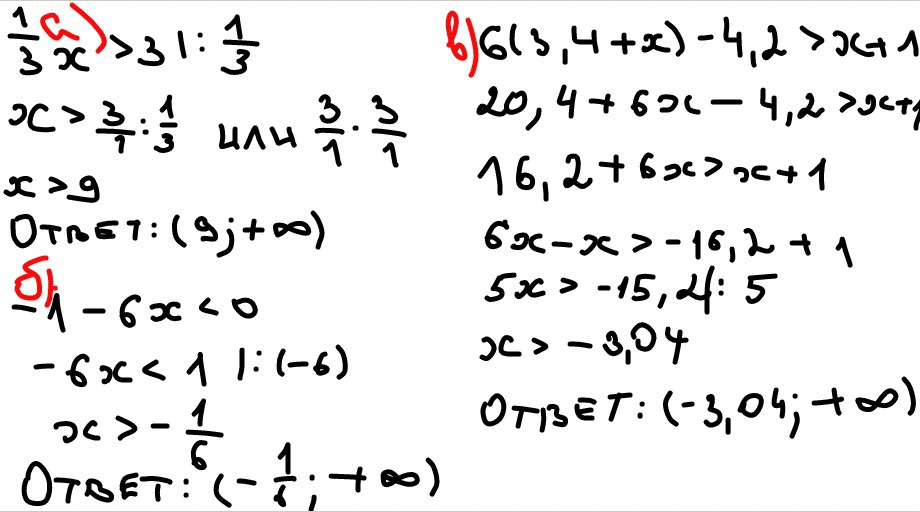 а) 1/3 x > 3 |: 1/3
x > 3/1 : 1/3 или 3/1 · 3/1
x > 9
Ответ: (9; +∞)
б)
-1 - 6x < 0
-6x < 1 |: (-6)
x > - 1/6
Ответ: (- 1/6; +∞)
в) 6(3,4+x) - 4,2 > x+1
20,4 + 6x - 4,2 > x+1
16,2 + 6x > x + 1
6x - x > -16,2 + 1
5x > -15,2 |: 5
x > -3,04
Ответ: (-3,04; +∞)